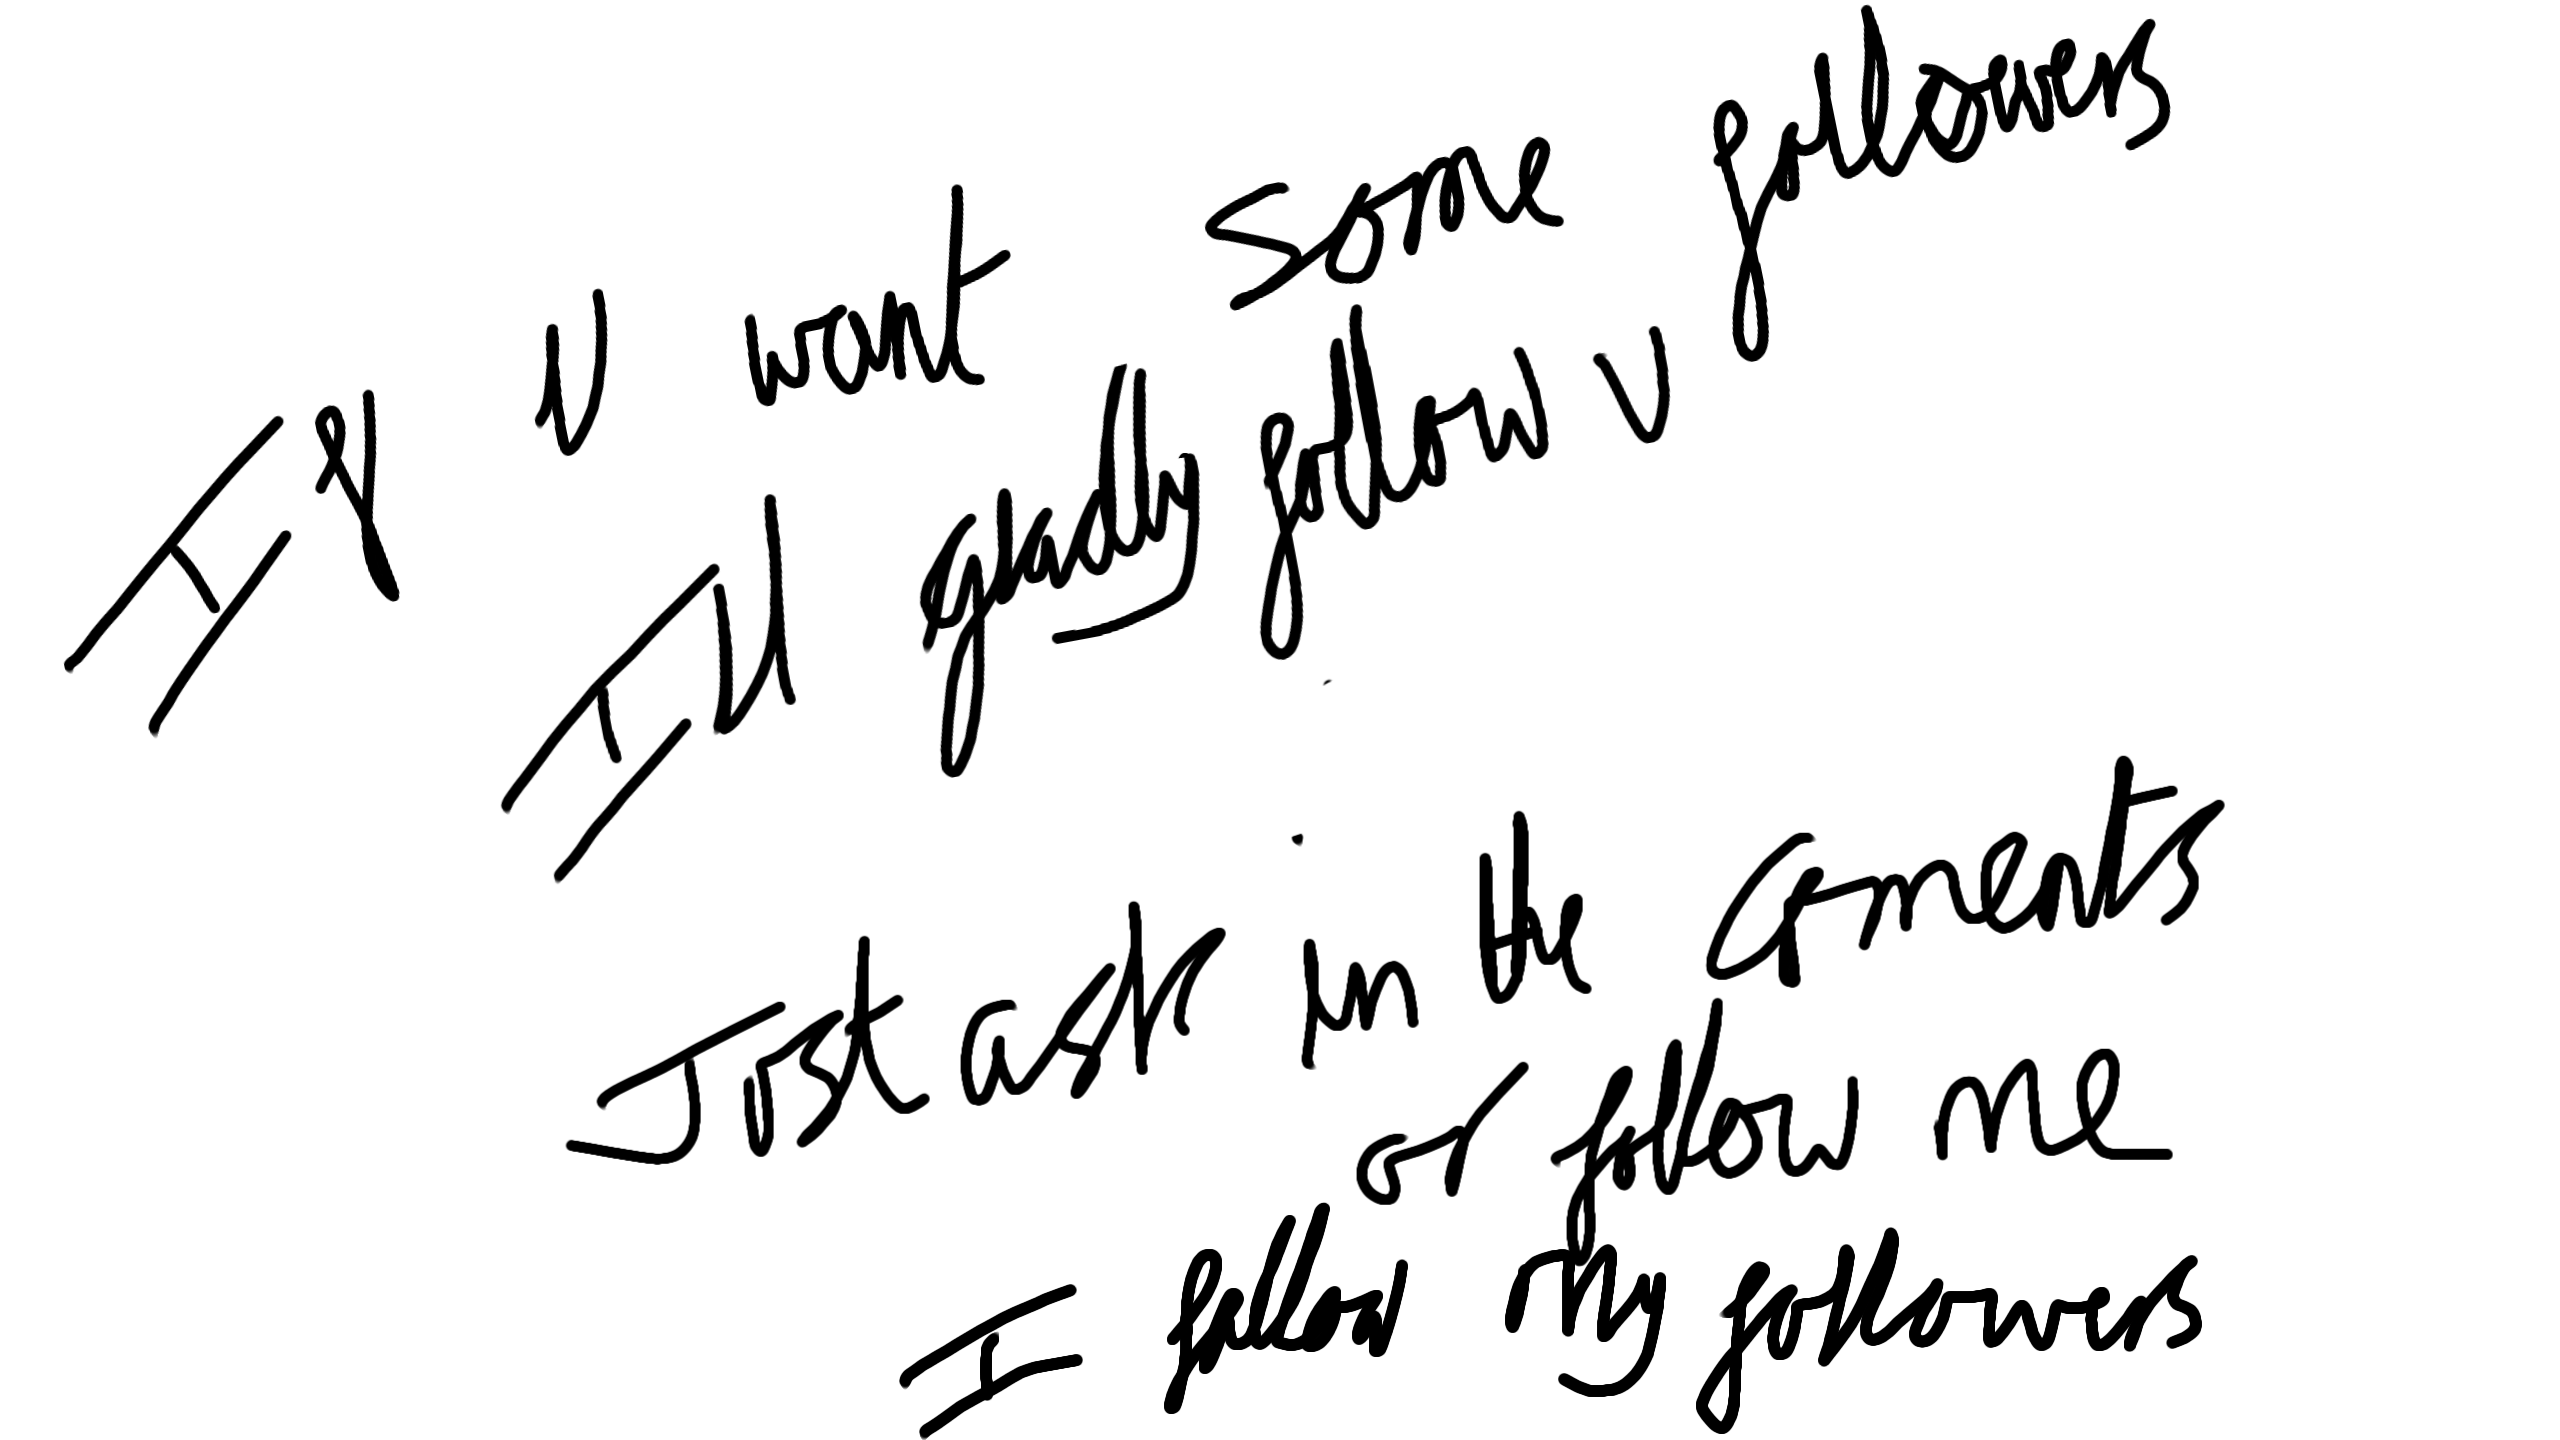 If U want some followers
Ill gladly follow U
Just ask in the coments
or follow me
I follow my followers